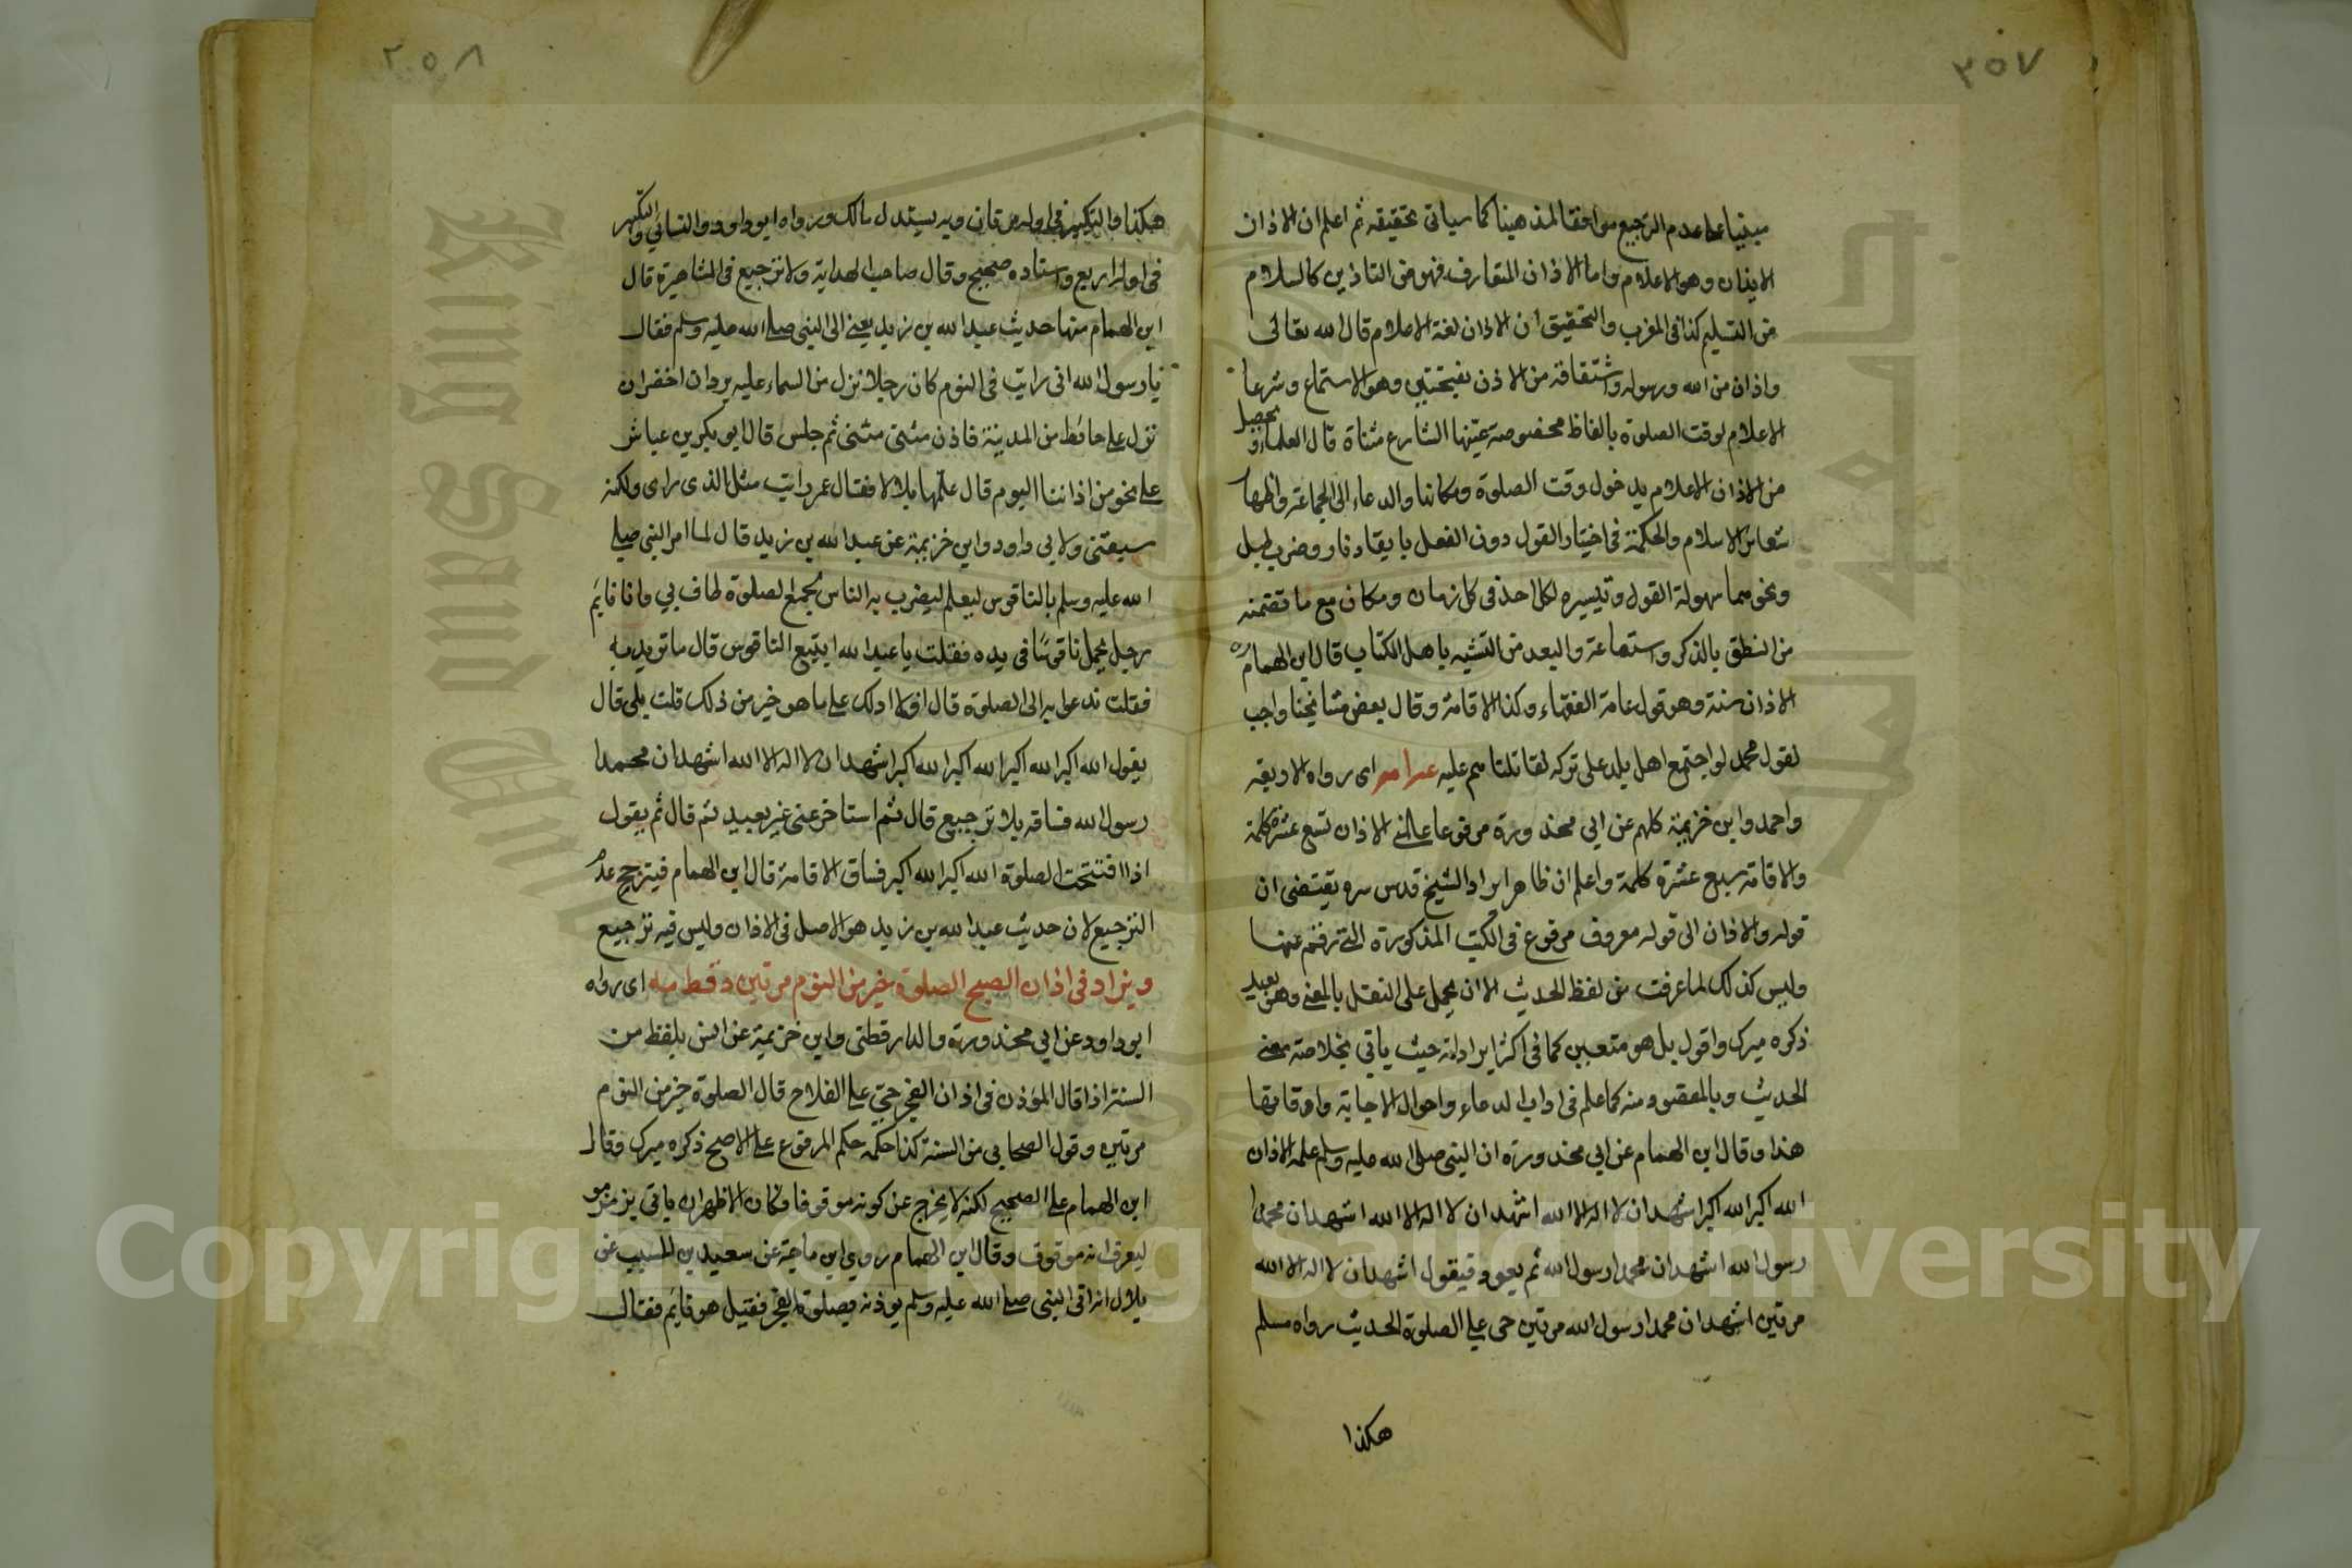 ٣٥٧
مبنيا على عدم الترجيع موافقا لمذهبنا كما سياتى تحقيقه ثم اعلم ان الاذان
الايذان وهو الاعلام واما الاذان المتعارف فهو من التاذين كالسلام
من التسليم كذا فى المغرب والتحقيق ان الاذان لغة الاعلام قال الله تعالى
واذان من الله ورسوله واشتقاقه من الاذن بفتحتين وهو الاستماع وشرعا
الاعلام لوقت الصلوة بالفاظ مخصوصة عيّنها الشارع مثناة قال العلماء ويحصل
من الاذان الاعلام بدخول وقت الصلوة ومكاننا والدعاء الى الجماعة واظهار
شعائر الاسلام والحكمة فى اختيار القول دون الفعل بايقاد نار وضرب طبل
ونحوهما سهولة القول وتيسيره لكل احد فى كل زمان ومكان مع ما تضمنه
من النطق بالذكر والبعد من التشبه باهل الكتاب قال ابن الهمام ره
الاذان سنة وهو قول عامة الفقهاء وكذا الاقامة وقال بعض مشايخنا واجب
لقول محمد لو اجتمع اهل بلد على تركه لقاتلناهم عليه عه ا مه اى رواه الاربعة
واحمد وابن خزيمة كلهم عن ابي محذورة مرفوعا الاذان تسع عشرة كلمة
والاقامة سبع عشرة كلمة واعلم ان ظاهر ايراد الشيخ قدس سره يقتضى ان
قوله والاذان الى قوله معروف مرفوع فى الكتب المذكورة التى رقم عنها
وليس كذلك لما عرفت من لفظ الحديث الا ان يحمل على النقل بالمعنى وهو بعيد
ذكره ميرك واقول بل هو متعين كما فى اكثر ايراداته حيث ياتي بخلاصة معنى
الحديث وبالمقصود منه كما علم فى اداب الدعاء واحوال الاجابة واوقاتها
هذا وقال ابن الهمام عن ابي محذورة ان النبى صلى الله عليه وسلم علمه الاذان
الله اكبر الله اكبر اشهد ان لا اله الا الله اشهد ان لا اله الا الله اشهد ان محمدا
رسول الله اشهد ان محمدا رسول الله ثم يعود فيقول اشهد ان لا اله الا الله
مرتين اشهد ان محمدا رسول الله مرتين حى على الصلوة الحديث رواه مسلم
هكذا
٣٥٨
هكذا والتكبير فى اوله مرتان وبه يستدل مالك ورواه ابو داود والنسائي والتكبير
فى اوله اربع واسناده صحيح وقال صاحب الهداية ولا ترجيع فى المشاهير قال
ابن الهمام منها حديث عبد الله بن زيد يعنى الى النبى صلى الله عليه وسلم فقال
يا رسول الله انى رايت فى النوم كان رجلا نزل من السماء عليه بردان اخضران
نزل على حائط من المدينة فاذن مثنى مثنى ثم جلس قال ابو بكر بن عياش
على نحو من اذاننا اليوم قال علمها بلالا فقال عمر رايت مثل الذى راى ولكنه
سبقنى ولابي داود وابن خزيمة عن عبد الله بن زيد قال لما امر النبى صلى
الله عليه وسلم بالناقوس ليعلم ليضرب به الناس لجمع الصلوة طاف بي وانا نايم
رجل يحمل ناقوسًا فى يده فقلت يا عبد الله اتبيع الناقوس قال ما تريد به
فقلت ندعو به الى الصلوة قال افلا ادلك على ما هو خير من ذلك قلت بلى قال
يقول الله اكبر الله اكبر الله اكبر الله اكبر اشهد ان لا اله الا الله اشهد ان محمدا
رسول الله فساقه بلا ترجيع قال ثم استاخر عنى غير بعيد ثم قال ثم يقول
اذا افتتحت الصلوة الله اكبر الله اكبر فساق الاقامة قال ابن الهمام فيترجح عدم
الترجيع لان حديث عبد الله بن زيد هو الاصل فى الاذان وليس فيه ترجيع
ويزاد فى اذان الصبح الصلوة خير من النوم مرتين د قط مه اى رواه
ابو داود عن ابي محذورة والدارقطنى وابن خزيمة عن انس بلفظ من
السنة اذا قال المؤذن فى اذان الفجر حى على الفلاح قال الصلوة خير من النوم
مرتين وقول الصحابي من السنة كذا حكمه حكم المرفوع على الاصح ذكره ميرك وقال
ابن الهمام على الصحيح لكنه لا يخرج عن كونه موقوفا فكان الاظهر ان ياتى برمز مو
ليعرف انه موقوف وقال ابن الهمام روى ابن ماجة عن سعيد بن المسيب عن
بلال انه اتى النبى صلى الله عليه وسلم يوذنه بصلوة الفجر فقيل هو نايم فقال
Copyright © King Saud University